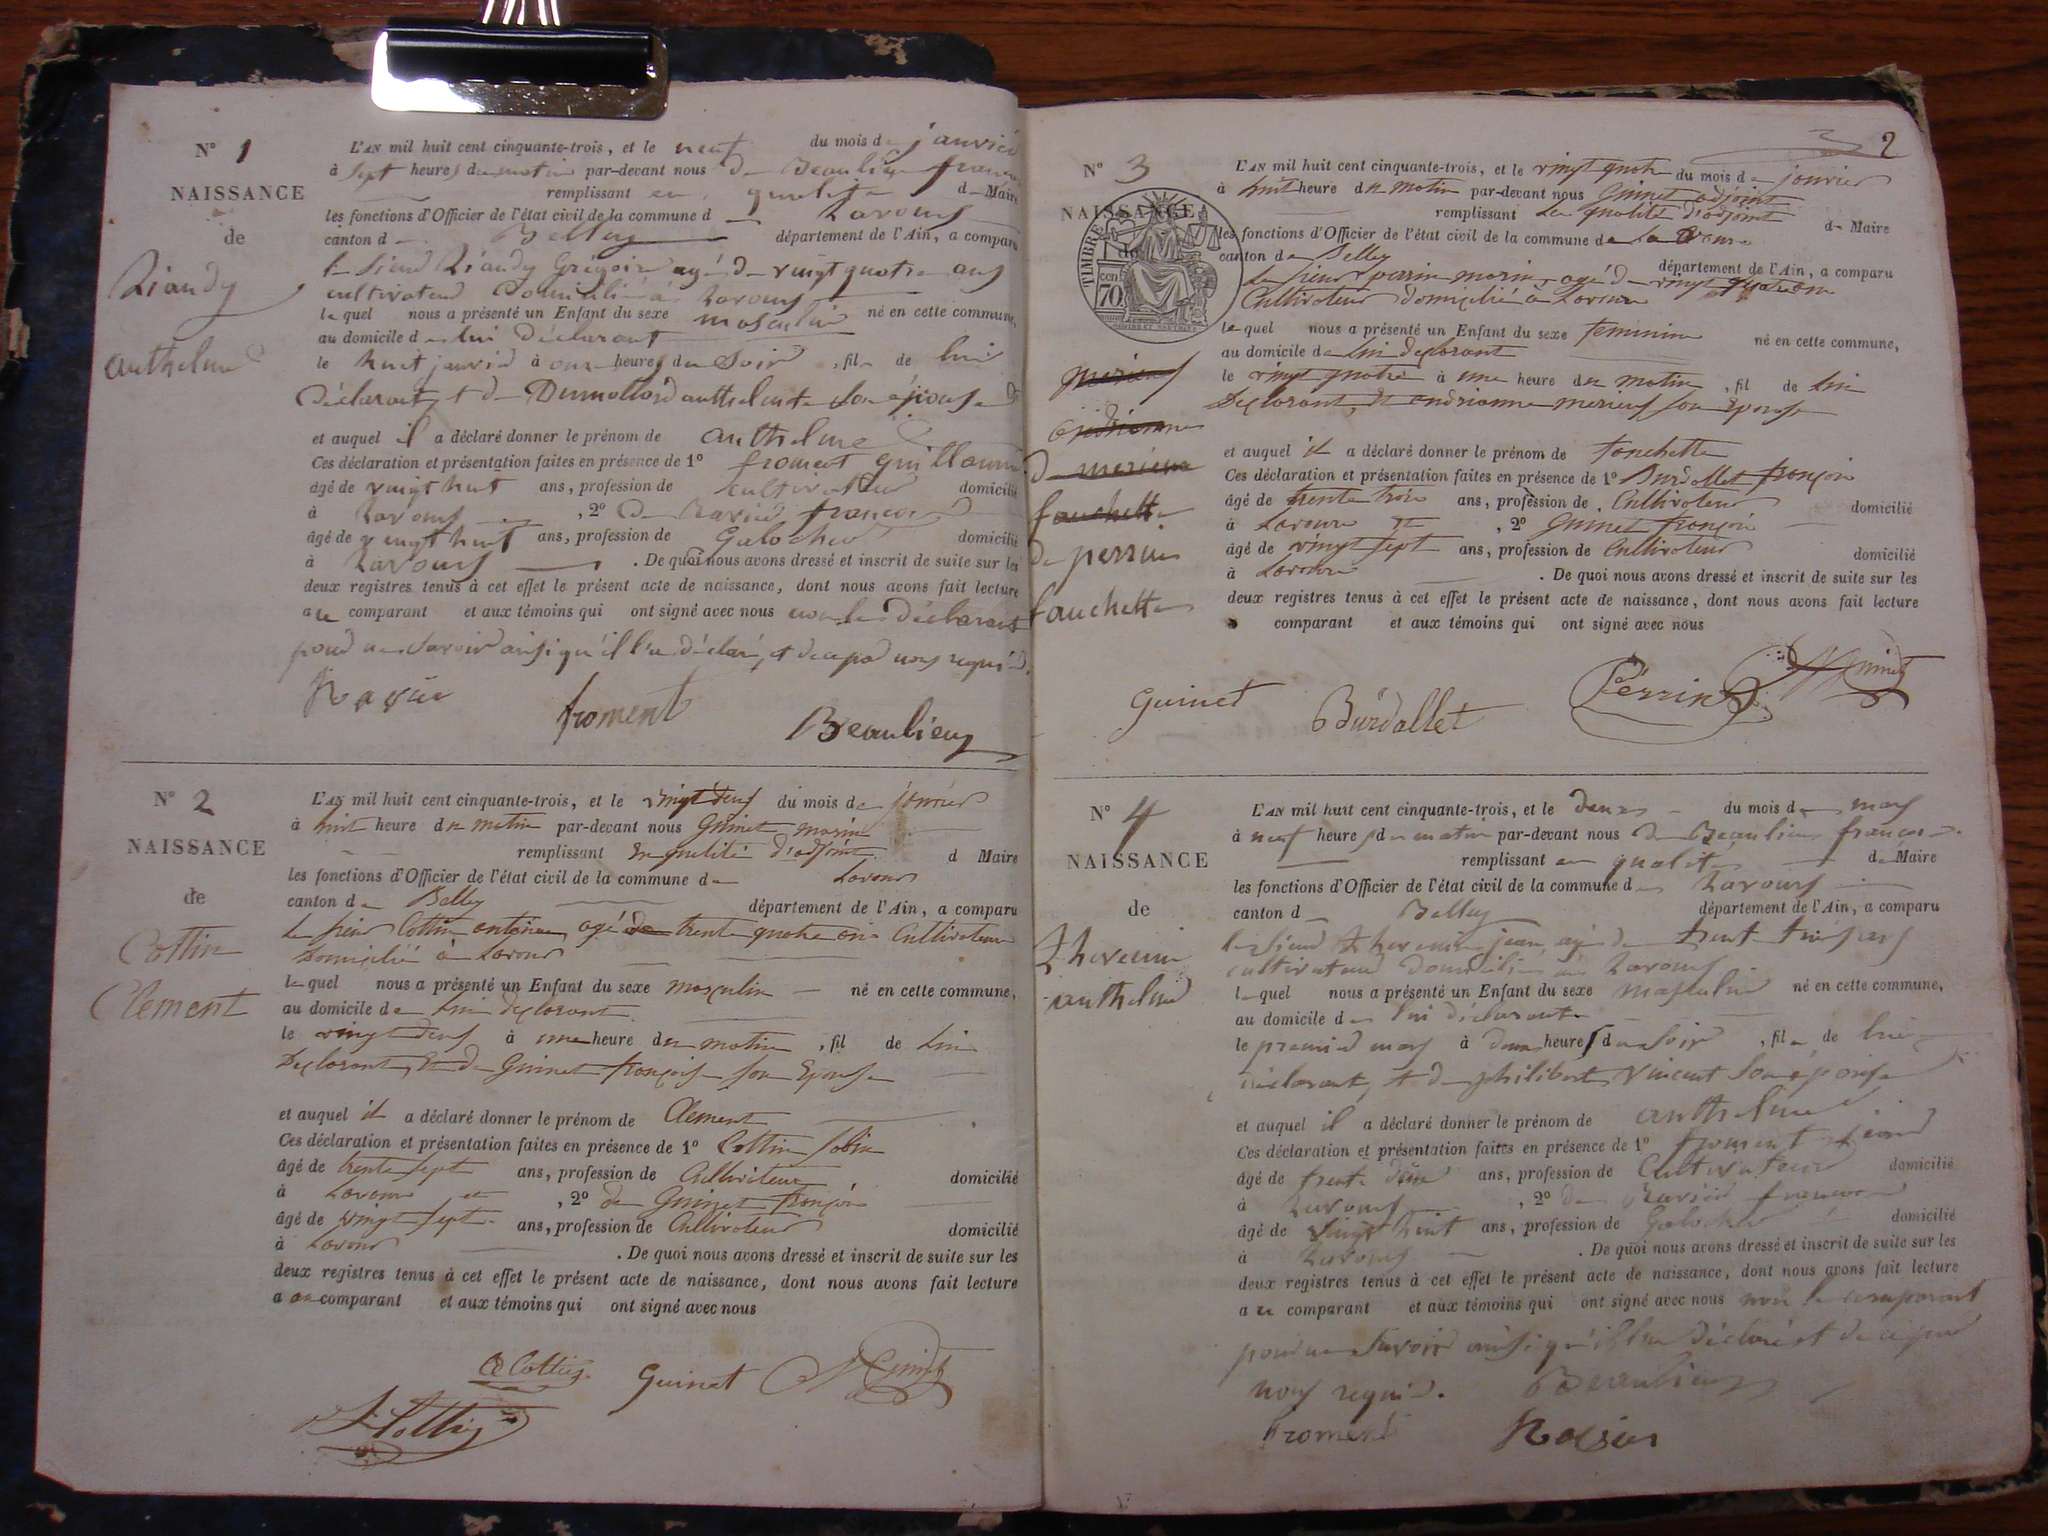 N° 1
NAISSANCE
de
Riandy
anthelme
L'AN mil huit cent cinquante-trois, et le neuf du mois de janvier
à sept heures du matin par-devant nous De Beaulieu françois
remplissant en qualité de Maire
les fonctions d'Officier de l'état civil de la commune d Lavours
canton d Belley département de l'Ain, a comparu
le sieur Riandy Grégoire agé de vingt quatre ans
cultivateur domicilié à Lavours
lequel nous a présenté un Enfant du sexe masculin né en cette commune,
au domicile de lui déclarant
le huit janvier à onze heures du soir, fils de lui
déclarant, et de Dumollard anthelmette son épouse
et auquel il a déclaré donner le prénom de anthelme
Ces déclaration et présentation faites en présence de 1° froment guillaume
âgé de vingt huit ans, profession de cultivateur domicilié
à Lavours, 2° De Ravier françois
âgé de vingt huit ans, profession de Galocher domicilié
à Lavours. De quoi nous avons dressé et inscrit de suite sur les
deux registres tenus à cet effet le présent acte de naissance, dont nous avons fait lecture
au comparant et aux témoins qui ont signé avec nous non le déclarant
pour ne savoir ainsi qu'il l'a déclaré, et de ce par nous requis.
Ravier froment Beaulieu
N° 2
NAISSANCE
de
Cottin
Clement
L'AN mil huit cent cinquante-trois, et le vingt deux du mois de janvier
à huit heure du matin par-devant nous Guinet marin
remplissant en qualité d'adjoint d Maire
les fonctions d'Officier de l'état civil de la commune de Lavour
canton de Belley département de l'Ain, a comparu
Le sieur Cottin antoine agé de trente quatre ans Cultivateur
domicilié à Lavour
lequel nous a présenté un Enfant du sexe masculin né en cette commune,
au domicile de lui declarant
le vingt deux à une heure du matin, fil de lui
Declarant, Et de Guinet françoise son Epouse
et auquel il a déclaré donner le prénom de Clement
Ces déclaration et présentation faites en présence de 1° Cottin
âgé de trente sept ans, profession de Cultivateur domicilié
à Lavour et, 2° de Guinet françois
âgé de vingt sept ans, profession de Cultivateur domicilié
à Lavour. De quoi nous avons dressé et inscrit de suite sur les
deux registres tenus à cet effet le présent acte de naissance, dont nous avons fait lecture
a au comparant et aux témoins qui ont signé avec nous
Cottin Guinet M Guinet
Cottin
2
N° 3
NAISSANCE
de
TIMBRE
70
merieux
andrianne
de merieux
fauchette
de perrin
fauchette
L'AN mil huit cent cinquante-trois, et le vingt quatre du mois de janvier
à huit heure du matin par-devant nous Guinet adjoint
remplissant La qualité d'adjoint de Maire
les fonctions d'Officier de l'état civil de la commune de Lavour
canton de Belley département de l'Ain, a comparu
Le sieur perrin marin, agé de vingt quatre ans
Cultivateur domicilié à Lavour
lequel nous a présenté un Enfant du sexe feminin né en cette commune,
au domicile de lui declarant
le vingt quatre à une heure du matin, fil de lui
Declarant, et andrianne merieux son Epouse
et auquel il a déclaré donner le prénom de fonchette
Ces déclaration et présentation faites en présence de 1° Burdollet françois
âgé de trente trois ans, profession de Cultivateur domicilié
à Lavour et, 2° Guinet françois
âgé de vingt sept ans, profession de Cultivateur domicilié
à Lavour. De quoi nous avons dressé et inscrit de suite sur les
deux registres tenus à cet effet le présent acte de naissance, dont nous avons fait lecture
comparant et aux témoins qui ont signé avec nous
Guinet Burdallet Perrin M Guinet
N° 4
NAISSANCE
de
Thevenin
anthelme
L'AN mil huit cent cinquante-trois, et le deux du mois de mars
à neuf heures du matin par-devant nous De Beaulieu françois
remplissant en qualité de Maire
les fonctions d'Officier de l'état civil de la commune de Lavours
canton d Belley département de l'Ain, a comparu
le sieur Thevenin jean, agé de trente trois ans
cultivateur domicilié à Lavours
lequel nous a présenté un Enfant du sexe masculin né en cette commune,
au domicile de lui déclarant
le premier mars à deux heures du soir, fils de lui
déclarant, et de philiberte Vincent son épouse
et auquel il a déclaré donner le prénom de anthelme
Ces déclaration et présentation faites en présence de 1° froment
âgé de trente deux ans, profession de Cultivateur domicilié
à Lavours, 2° de Ravier françois
âgé de vingt huit ans, profession de Galocher domicilié
à Lavours. De quoi nous avons dressé et inscrit de suite sur les
deux registres tenus à cet effet le présent acte de naissance, dont nous avons fait lecture
au comparant et aux témoins qui ont signé avec nous non le comparant
pour ne savoir ainsi qu'il l'a déclaré et de ce par
nous requis. Beaulieu
froment Ravier